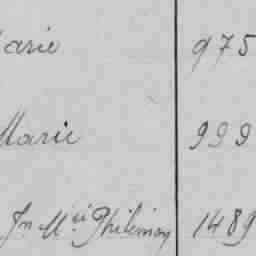 Marie 975
Marie 999
Jn Mie Philemon 1489